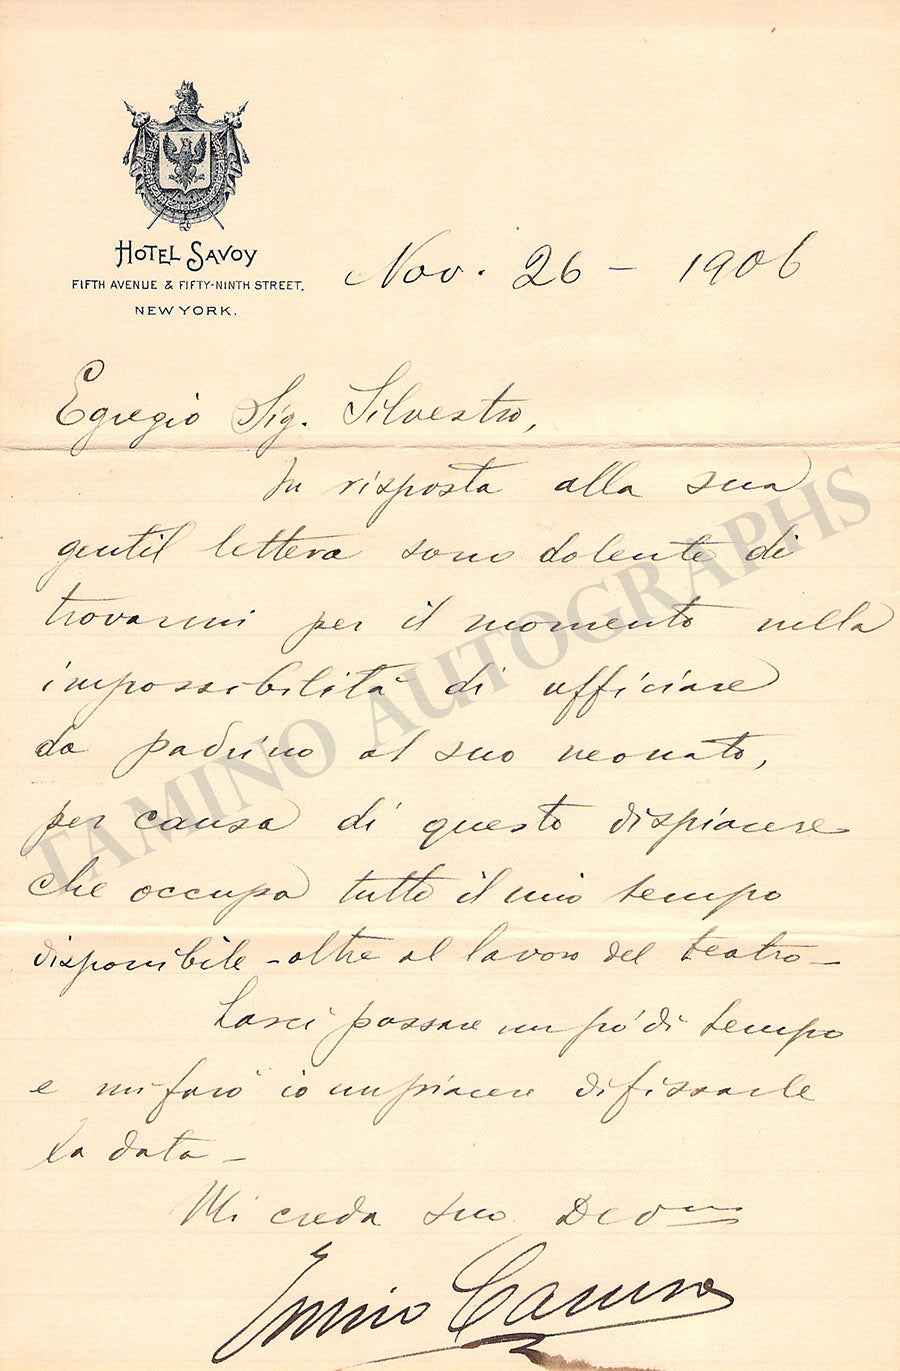 HOTEL SAVOY
FIFTH AVENUE & FIFTY-NINTH STREET.
NEW YORK.
Nov. 26 – 1906
Egregio Sig. Silvestro,
In risposta alla sua
gentil lettera sono dolente di
trovarmi per il momento nella
impossibilità di ufficiare
da padrino al suo neonato,
per causa di questo dispiacere
che occupa tutto il mio tempo
disponibile – oltre al lavoro del teatro –
Lasci passare un pó di tempo
e mi farò io un piacere di fissarle
la data –
Mi creda suo Devmo
Enrico Caruso
TAMINO AUTOGRAPHS